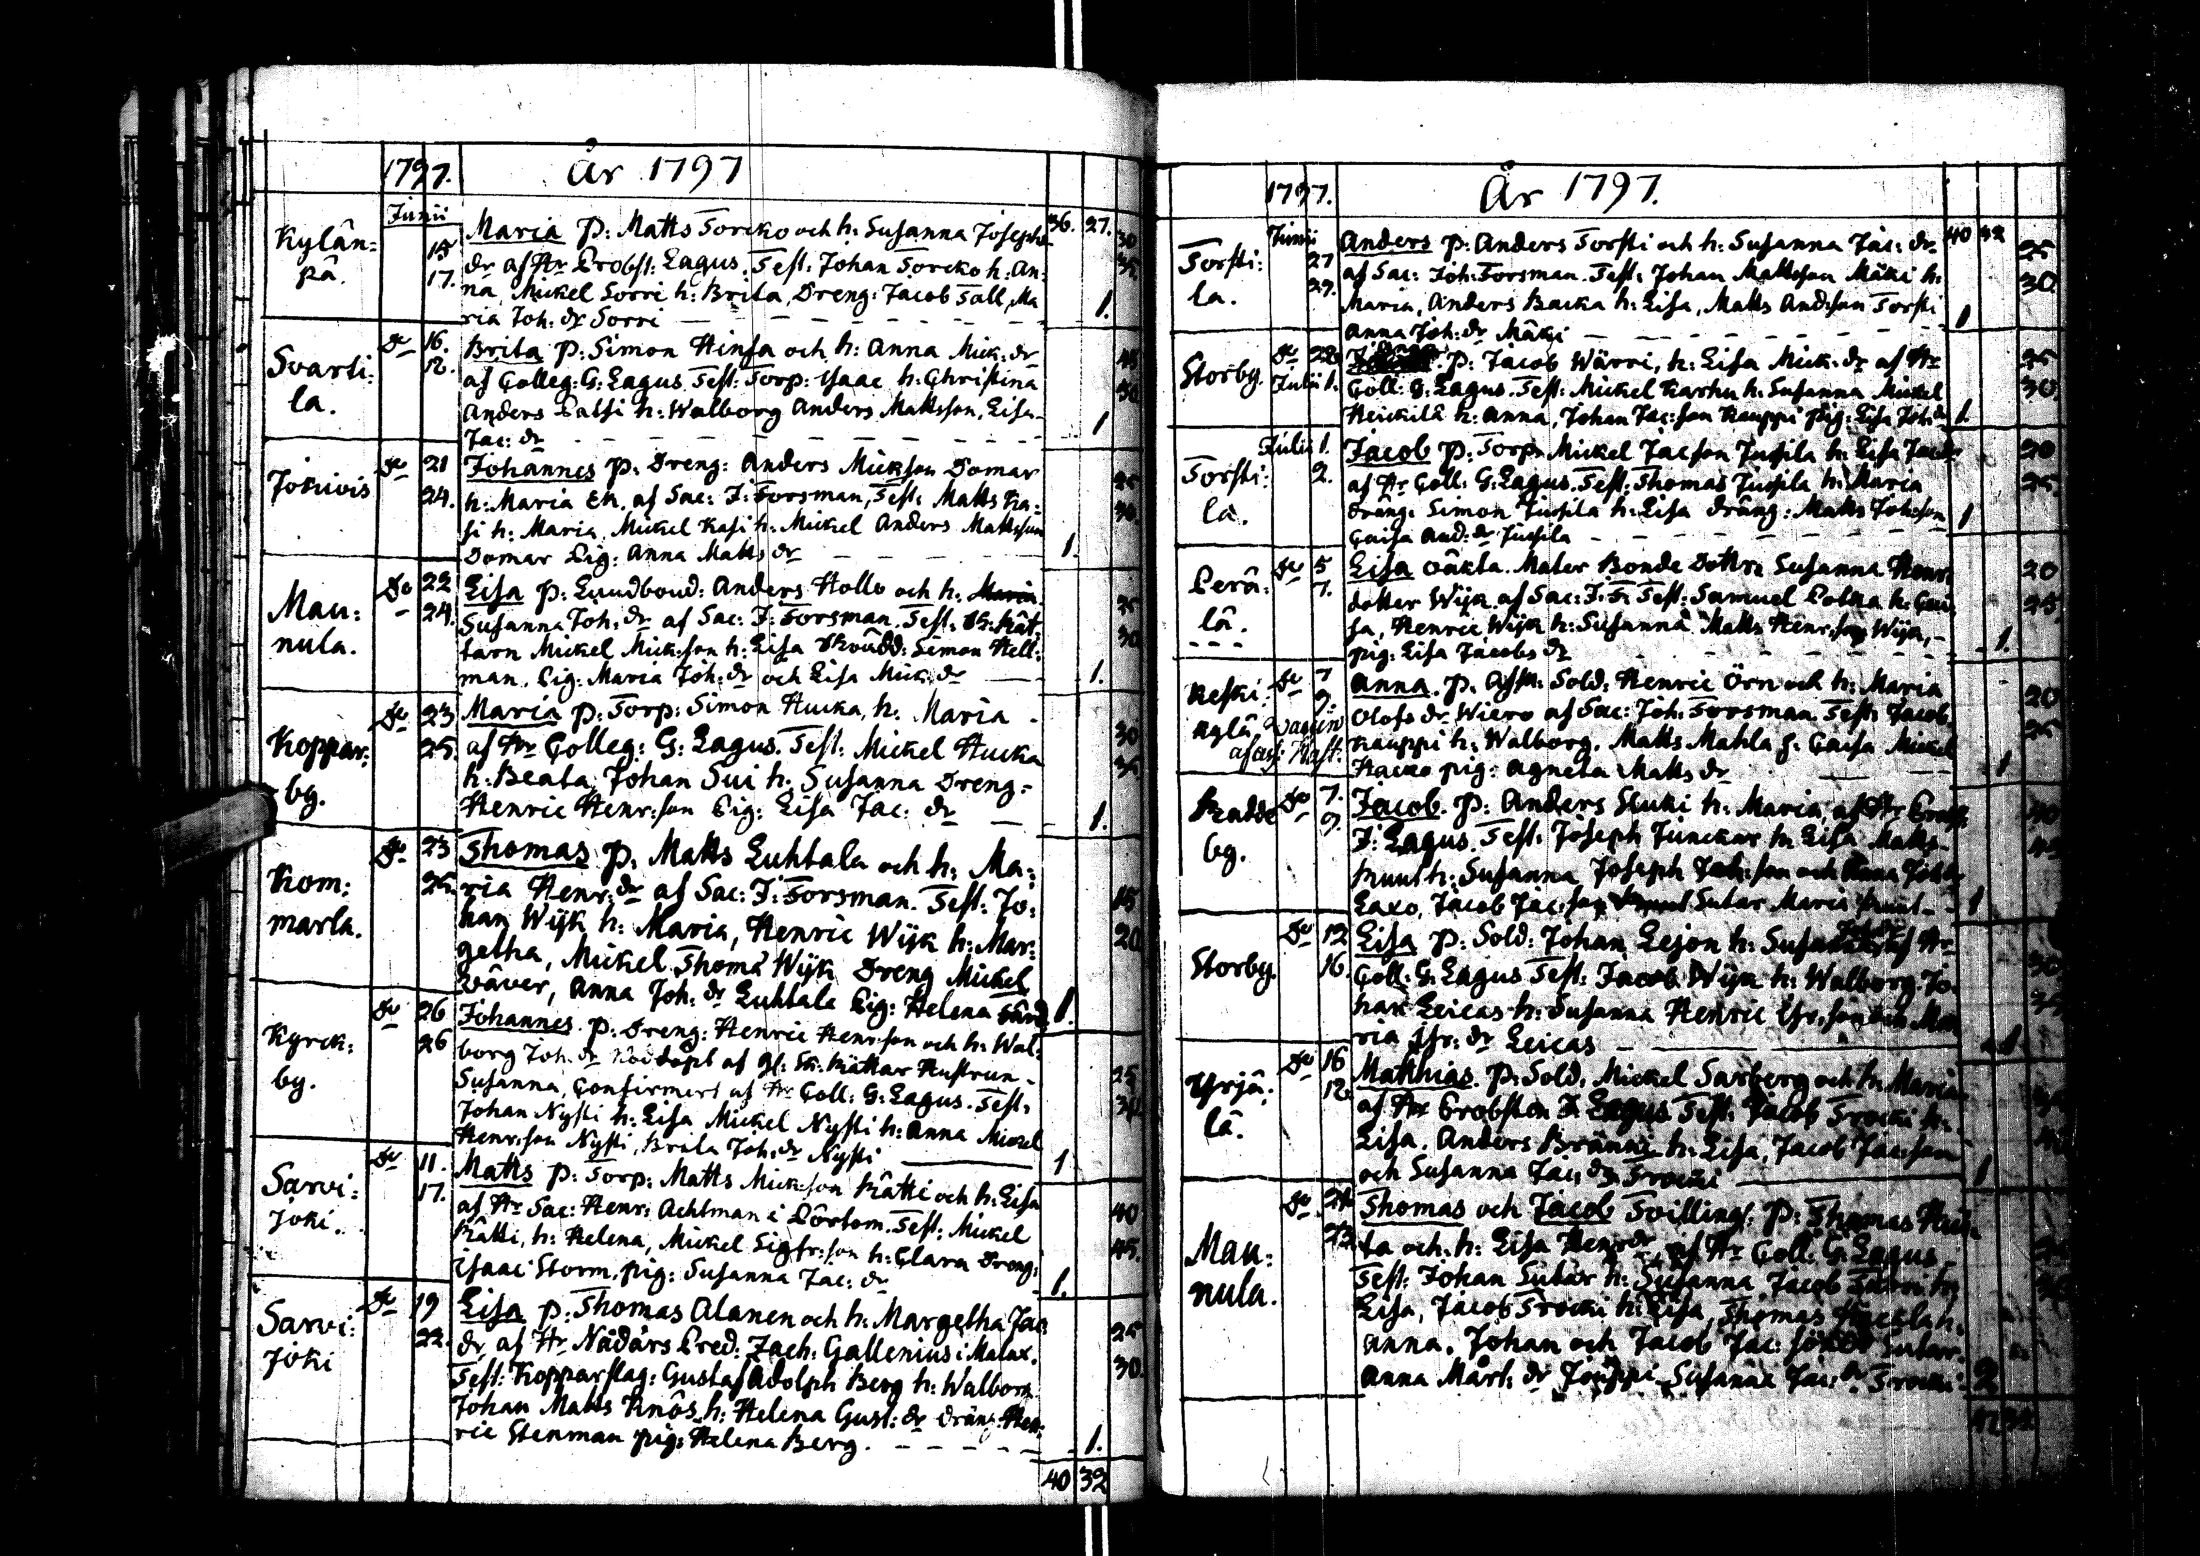 1797. År 1797
Junii
Kylän: 15 Maria p: Matts Torcko och h: Susanna Josephs 36. 27. 30
pä. 17. dr af Hr Probst: Lagus. Test: Johan Torcko h: An: 35
na, Mickel Sorri h: Brita, Dreng: Jacob Tall, Ma
ria Joh: dr Sorri 1.
Svarti: Do 16. Brita p: Simon Hinsa och h: Anna Mick: dr 45
la. 18. af Colleg: G: Lagus. Test: Torp: Isaac h: Christina 50
Anders Palsi h: Walborg Anders Mattsson, Lisa 1
Jac: dr
Jokivis Do 21 Johannes p: Dreng: Anders Mickson Domar 25
24. h: Maria Er. af Sac: J: Forsman, Test: Matts Ka: 30.
si h: Maria, Mickel Kasi h: Mickel Anders Mattsson
Domar Pig: Anna Matts dr 1.
Mau: Do 22 Lisa p: Lundbond: Anders Hollo och h: Maria 25
nula. 24. Susanna Joh: dr af Sac: J: Forsman. Test: Sk: Kät: 30
tarn Mickel Mick:son h: Lisa Skrädd: Simon Hell:
man. Pig: Maria Joh: dr och Lisa Mick: dr 1.
Koppar: Do 23 Maria p: Torp: Simon Hucka, h: Maria 30
by. 25. af Hr Colleg: G: Lagus. Test: Mickel Hucka 35
h: Beata, Johan Sui h: Susanna Dreng
Henric Henr:son Pig: Lisa Jac: dr 1.
Kom: Do 23 Thomas p. Matts Luhtala och h: Ma:
marla. 25. ria Henr: dr af Sac: J: Forsman. Test: Jo: 15
han Wijk h: Maria, Henric Wijk h: Mar: 20
getha, Mickel Thoma Wijk Dreng Mickel
Wäver, Anna Joh: dr Luhtala Pig: Helena 1.
Kyrck: Do 26 Johannes. p: Dreng: Henric Henr:son och h: Wal:
by. 26 borg Joh: dr Nöddöpt af Gl: Sk: Kättar Hustrun 25
Susanna, Confirmert af Hr Coll: G: Lagus. Test: 30
Johan Nysti h: Lisa Mickel Nysti h: Anna Mickel
Henr:son Nysti, Brita Joh: dr Nysti 1
Sarvi: Do 11. Matts p: Torp: Matts Mickson Kätti och h: Lisa
Joki. 17. af Hr Sac: Henr: Achtman i Pörtom. Test: Mickel 40
Kätti, h: Helena, Mickel Sigfr:son h: Clara Dreng: 45.
Isaac Storm, pig: Susanna Jac: dr 1.
Sarvi: Do 19 Lisa p: Thomas Alanen och h: Margetha Jac
Joki 22. dr, af Hr Nådårs Pred: Zach: Gallenius i Malax. 25
Test: Kopparslag: Gustaf Adolph Berg h: Walborg 30
Johan Matts Knös h: Helena Gust: dr dräng: Hen:
ric Stenman pig: Helena Berg. 1.
40 32
1797. År 1797.
Junii 40 32
Torsti: 27 Anders p: Anders Torsti och h: Susanna Jac: dr 25
la. 29. af Sac: Joh: Forsman. Test: Johan Mattsson Mäki h: 30
Maria, Anders Backa h: Lisa, Matts And:son Torsti
Anna Joh: dr Mäki 1
Storby Do 28 p: Jacob Wärri, h: Lisa Mick: dr af Hr 25
Julii 1. Coll: G: Lagus. Test: Mickel Karhu h: Susanna Mickel 30
Heickilä h: Anna, Johan Jac:son Kauppi pig: Lisa Joh: dr 1
Torsti: Julii 1. Jacob p: Torp: Mickel Jacson Jussila h: Lisa Jac: dr 20
la. 2. af Hr Coll: G: Lagus. Test: Thomas Jussila h: Maria 25.
dräng: Simon Jussila h: Lisa dräng: Matts Joh:son
Caisa And: dr Jussila 1
Perä: Do 5 Lisa oäkta. Mater Bonde Dottr: Susanna Henr: 20
lä. 7. dotter Wijk. af Sac: J: F: Test: Samuel Polka h: Cai 25.
sa, Henric Wijk h: Susanna Matts Henr:son Wijk,
pig: Lisa Jacobs dr 1.
Keski: Do 7 Anna. p: Afsk: Sold: Henric Örn och h: Maria 20
kylä, 9. Olofs dr Wiero af Sac: Joh: Forsman. Test: Jacob 25
Kauppi h: Walborg. Matts Mahla h: Caisa Mickel
Hacko pig: Agneta Matts dr 1
Kadde Do 7. Jacob. p: Anders Sluki h: Maria, af Hr Probst 40
by. 9. J: Lagus. Test: Joseph Junckar h: Lisa Matts
Knuut h: Susanna Joseph Joh:son och Anna Joh: dr
Laxo, Jacob Jac:son Sutar Maria Knuut 1
Storby Do 12 Lisa p: Sold: Johan Lejon h: Susanna af Hr
16. Coll: G: Lagus Test: Jacob Wijk h: Walborg. Jo:
han Leicas h: Susanna Henric Isr:son
ria Isr: dr Leicas 1
Yrjä: Do 16 Matthias. p: Sold: Mickel Sarberg och h: Maria
lä. 18 af Hr Probsten J: Lagus Test: Jacob Frocki h:
Lisa. Anders Bränni h: Lisa, Jacob Jac:son
och Susanna Jac: dr Frocki 1
Mau: Do Thomas och Jacob Tvillings: p: Thomas
nula. ta och h: Lisa Henr: dr af Hr Coll: G: Lagus
Test: Johan Sutar h: Susanna, Jacob
Lisa, Jacob Frocki h: Lisa, Thomas
Anna. Johan och Jacob Jac: söner Sutar.
Anna Mårt: dr Jouppi Susanna Jac: dr Frocki 2